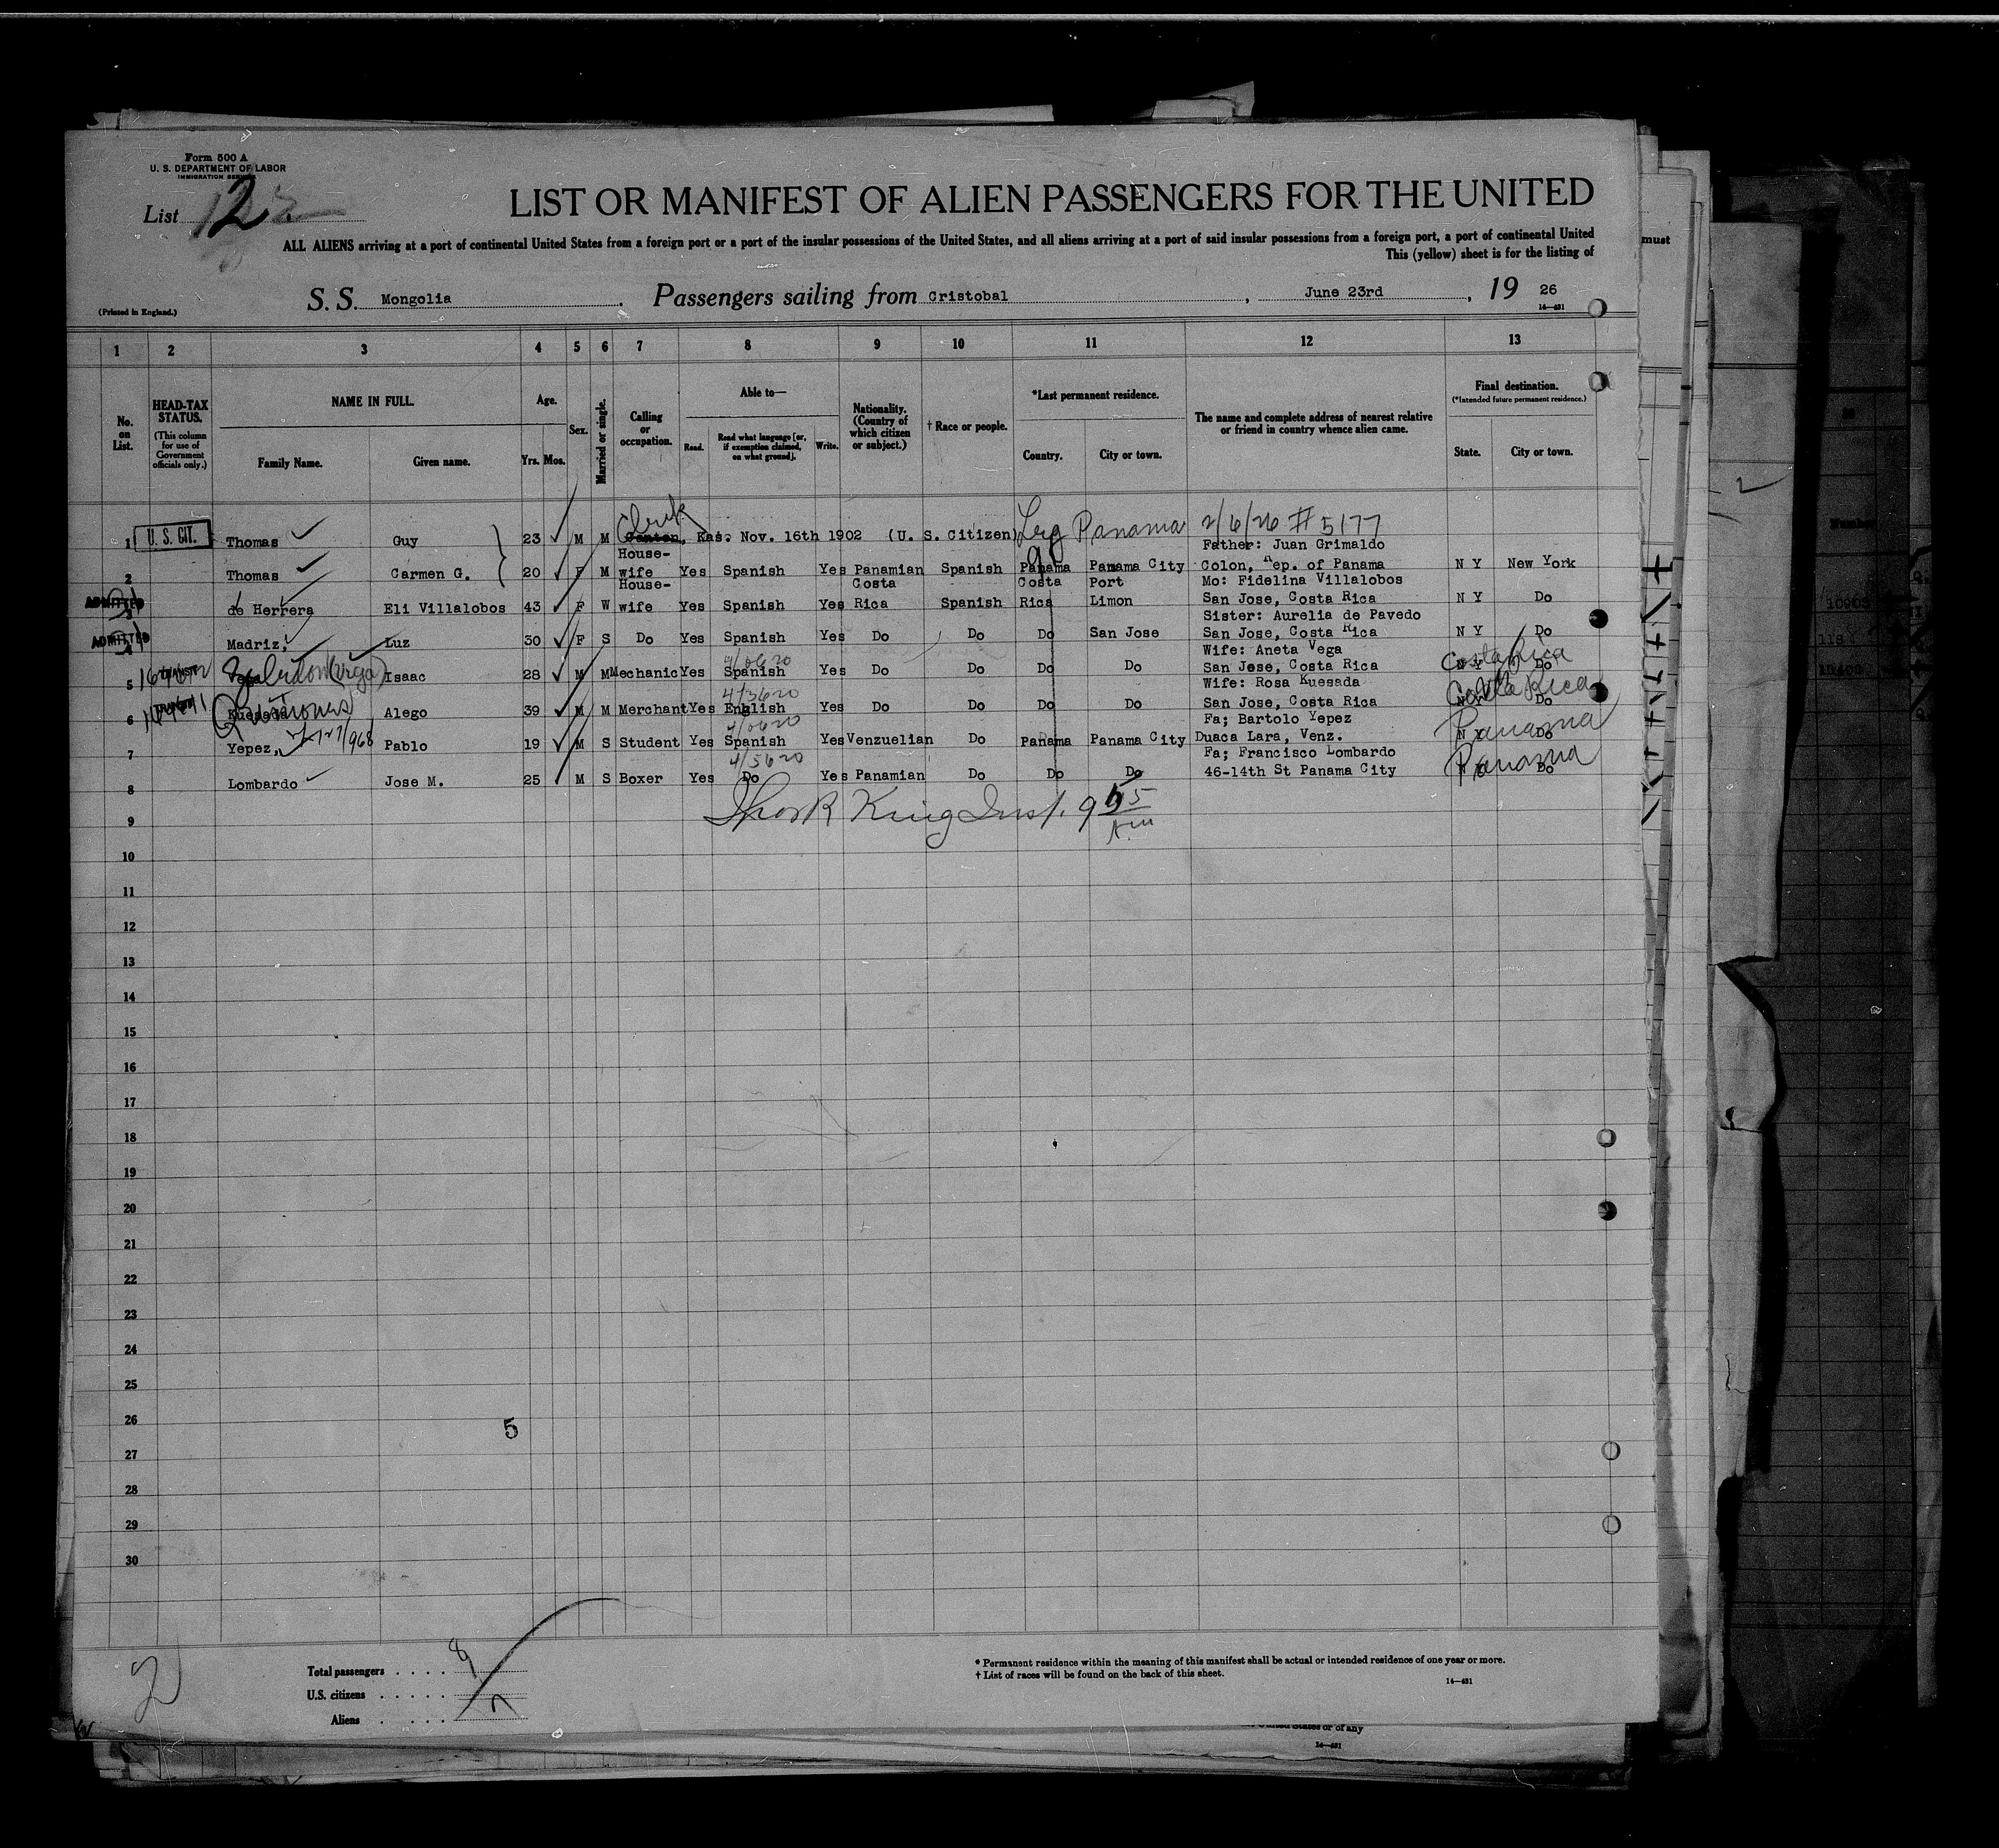 Form 500 A
U. S. DEPARTMENT OF LABOR
IMMIGRATION SERVICE
List 2
LIST OR MANIFEST OF ALIEN PASSENGERS FOR THE UNITED
ALL ALIENS arriving at a port of continental United States from a foreign port or a port of the insular possessions of the United States, and all aliens arriving at a port of said insular possessions from a foreign port, a port of continental United
This (yellow) sheet is for the listing of
must
(Printed in England.)
S. S. Mongolia. Passengers sailing from Cristobal, June 23rd, 19 26
14-431
1 2 3 4 5 6 7 8 9 10 11 12 13
No. on List.
HEAD-TAX STATUS.
(This column for use of Government officials only.)
NAME IN FULL.
Family Name. Given name.
Age.
Yrs. Mos.
Sex.
Married or single.
Calling or occupation.
Able to—
Read. Read what language [or, if exemption claimed, on what ground]. Write.
Nationality. (Country of which citizen or subject.)
† Race or people.
*Last permanent residence.
Country. City or town.
The name and complete address of nearest relative or friend in country whence alien came.
Final destination.
(*Intended future permanent residence.)
State. City or town.
Clerk
1 U. S. CIT. Thomas Guy 23 M M Canton, Kas. Nov. 16th 1902 (U. S. Citizen) Leg Panama 2/6/26 # 5177
House- Father: Juan Grimaldo
2 Thomas Carmen G. 20 F M wife Yes Spanish Yes Panamian Spanish Panama Panama City Colon, Rep. of Panama N Y New York
House- Costa Costa Port Mo: Fidelina Villalobos
3 ADMITTED de Herrera Eli Villalobos 43 F W wife Yes Spanish Yes Rica Spanish Rica Limon San Jose, Costa Rica N Y Do
Sister: Aurelia de Pavedo
4 ADMITTED Madriz, Luz 30 F S Do Yes Spanish Yes Do Do Do San Jose San Jose, Costa Rica N Y Do
Wife: Aneta Vega
5 Isaac 28 M M Mechanic Yes Spanish Yes Do Do Do Do San Jose, Costa Rica N Y Do Costa Rica
Wife: Rosa Kuesada
6 Kuesada Quinones Alego 39 M M Merchant Yes English Yes Do Do Do Do San Jose, Costa Rica N Y Do Costa Rica
Fa; Bartolo Yepez
7 Yepez, Pablo 19 M S Student Yes Spanish Yes Venzuelian Do Panama Panama City Duaca Lara, Venz. N Y Do Panama
Fa; Francisco Lombardo
8 Lombardo Jose M. 25 M S Boxer Yes Do Yes Panamian Do Do Do 46-14th St Panama City N Y Do Panama
9
10
11
12
13
14
15
16
17
18
19
20
21
22
23
24
25
26
5
27
28
29
30
2
Total passengers . . . . 8
U.S. citizens . . . . .
Aliens . . . . 7
* Permanent residence within the meaning of this manifest shall be actual or intended residence of one year or more.
† List of races will be found on the back of this sheet.
14-431
United States or of any
14-431